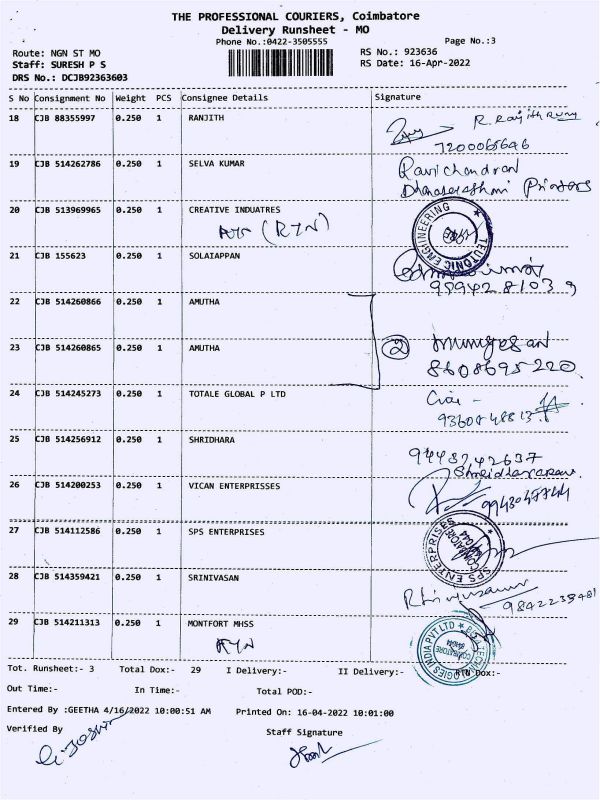 THE PROFESSIONAL COURIERS, Coimbatore
Delivery Runsheet - MO
Phone No.:0422-3505555
Page No.:3
Route: NGN ST MO
RS No.: 923636
Staff: SURESH P S
RS Date: 16-Apr-2022
DRS No.: DCJB92363603
S No Consignment No Weight PCS Consignee Details Signature
18 CJB 88355997 0.250 1 RANJITH
7200065646
19 CJB 514262786 0.250 1 SELVA KUMAR Ravichandran
Printers
20 CJB 513969965 0.250 1 CREATIVE INDUATRES
(RTN)
TEUTONIC ENGINEERING
21 CJB 155623 0.250 1 SOLAIAPPAN
22 CJB 514260866 0.250 1 AMUTHA
23 CJB 514260865 0.250 1 AMUTHA 2 murugesan
8608695220
24 CJB 514245273 0.250 1 TOTALE GLOBAL P LTD
25 CJB 514256912 0.250 1 SHRIDHARA
26 CJB 514200253 0.250 1 VICAN ENTERPRISSES
27 CJB 514112586 0.250 1 SPS ENTERPRISES
SPS ENTERPRISES
28 CJB 514359421 0.250 1 SRINIVASAN
29 CJB 514211313 0.250 1 MONTFORT MHSS
RTN
Tot. Runsheet:- 3 Total Dox:- 29 I Delivery:- II Delivery:- RTN Dox:-
Out Time:- In Time:- Total POD:-
Entered By :GEETHA 4/16/2022 10:00:51 AM Printed On: 16-04-2022 10:01:00
Verified By Staff Signature